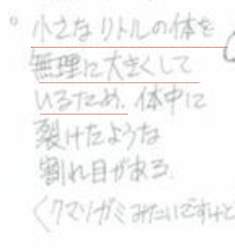 。小さなリトルの体を
無理に大きくして
いるため、体中に
裂けたような
割れ目がある
(クマソガミみたいですけど